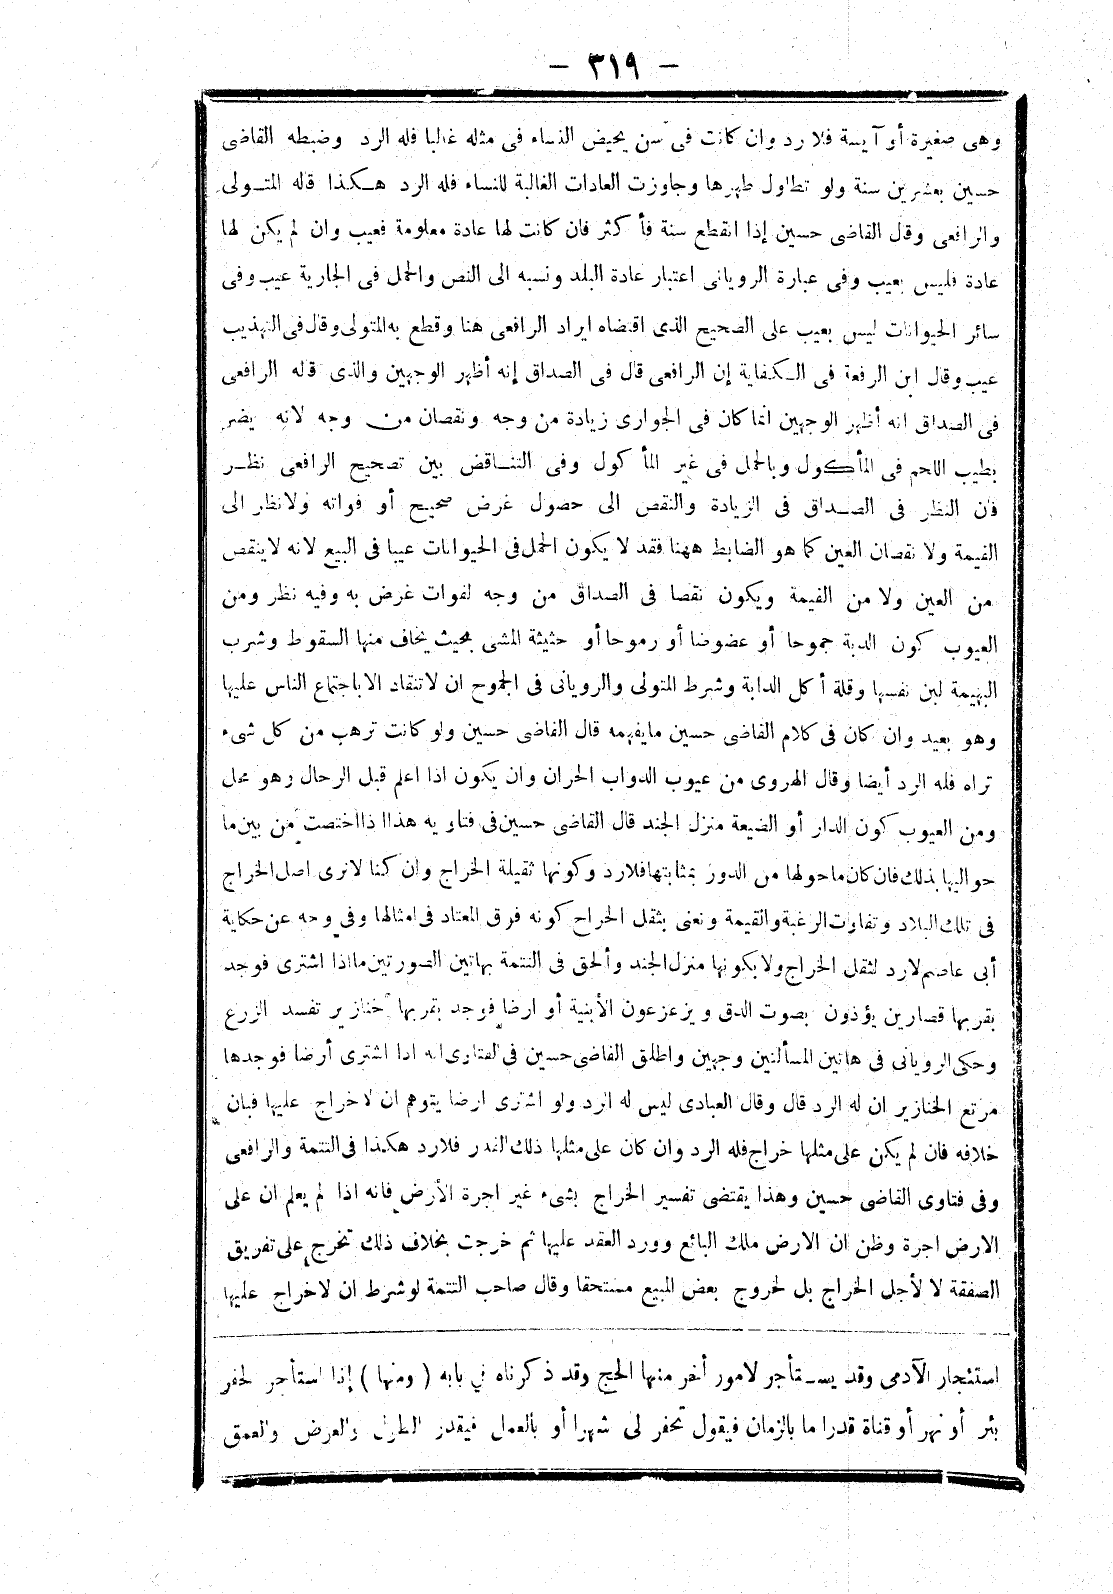 — ٣١٩ —
وهى صغيرة أو آيسة فلا رد وان كانت فى سن يحيض النساء فى مثله غالبا فله الرد وضبطه القاضى
حسين بعشرين سنة ولو تطاول طهرها وجاوزت العادات الغالبة للنساء فله الرد هكذا قاله المتولى
والرافعى وقال القاضى حسين إذا انقطع سنة فأكثر فان كانت لها عادة معلومة فعيب وان لم يكن لها
عادة فليس بعيب وفى عبارة الرويانى اعتبار عادة البلد ونسبه الى النص والحمل فى الجارية عيب وفى
سائر الحيوانات ليس بعيب على الصحيح الذى اقتضاه ايراد الرافعى هنا وقطع به المتولى وقال فى التهذيب
عيب وقال ابن الرفعة فى الكفاية إن الرافعى قال فى الصداق إنه أظهر الوجهين والذى قاله الرافعى
فى الصداق انه أظهر الوجهين انما كان فى الجوارى زيادة من وجه ونقصان من وجه لانه يضر
بطيب اللحم فى المأكول وبالحمل فى غير المأكول وفى التناقض بين تصحيح الرافعى نظر
فان النظر فى الصداق فى الزيادة والنقص الى حصول غرض صحيح أو فواته ولا نظر الى
القيمة ولا نقصان العين كما هو الضابط ههنا فقد لا يكون الحمل فى الحيوانات عيبا فى البيع لانه لا ينقص
من العين ولا من القيمة ويكون نقصا فى الصداق من وجه لفوات غرض به وفيه نظر ومن
العيوب كون الدبة جموحا أو عضوضا أو رموحا أو حثيثة المشى بحيث يخاف منها السقوط وشرب
البهيمة لبن نفسها وقلة أكل الدابة وشرط المتولى والرويانى فى الجموح ان لا تنقاد الا باجتماع الناس عليها
وهو بعيد وان كان فى كلام القاضى حسين ما يفهمه قال القاضى حسين ولو كانت ترهب من كل شىء
تراه فله الرد أيضا وقال الهروى من عيوب الدواب الحران وان يكون اذا اعلم قبل الرحال رهو محل
ومن العيوب كون الدار أو الضيعة منزل الجند قال القاضى حسين فى فتاويه هذا اذا اختصت من بين ما
حواليها بذلك فان كان ما حولها من الدور بمثابتها فلا رد وكونها ثقيلة الخراج وان كنا لا نرى اصل الخراج
فى تلك البلاد وتفاوت الرغبة والقيمة ونعنى بثقل الخراح كونه فرق المعتاد فى امثالها وفى وجه عن حكاية
أبى عاصم لا رد لثقل الخراج ولا بكونها منزل الجند وألحق فى التتمة بهاتين الصورتين ما اذا اشترى فوجد
بقربها قصارين يؤذون بصوت الدق ويزعزعون الأبنية أو ارضا فوجد بقربها خنازير تفسد الزرع
وحكى الرويانى فى هاتين المسألتين وجهين واطلق القاضى حسين فى الفتاوى انه اذا اشترى أرضا فوجدها
مرتع الخنازير ان له الرد قال وقال العبادى ليس له الرد ولو اشترى ارضا يتوهم ان لا خراج عليها فبان
خلافه فان لم يكن على مثلها خراج فله الرد وان كان على مثلها ذلك القدر فلا رد هكذا فى التتمة والرافعى
وفى فتاوى القاضى حسين وهذا يقتضى تفسير الخراج بشىء غير اجرة الأرض فانه اذا لم يعلم ان على
الارض اجرة وظن ان الارض ملك البائع وورد العقد عليها ثم خرجت بخلاف ذلك تخرج على تفريق
الصفقة لا لأجل الخراج بل لخروج بعض المبيع مستحقا وقال صاحب التتمة لو شرط ان لا خراج عليها
استئجار الآدمى وقد يستأجر لامور أخر منها الحج وقد ذكرناه في بابه ( ومنها ) إذا استأجر لحفر
بئر أو نهر أو قناة قدرا ما بالزمان فيقول تحفر لى شهرا أو بالعمل فيقدر الطول والعرض والعمق